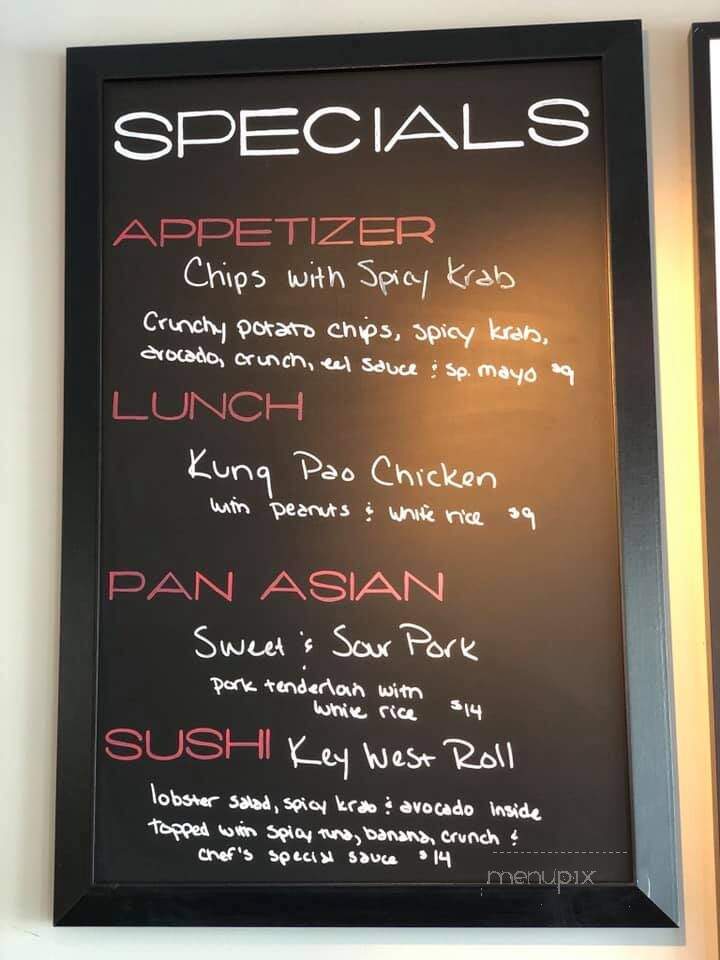 SPECIALS
APPETIZER
Chips with Spicy Krab
Crunchy potato chips, spicy krab,
avocado, crunch, eel sauce & sp. mayo $9
LUNCH
Kung Pao Chicken
with peanuts & white rice $9
PAN ASIAN
Sweet & Sour Pork
pork tenderloin with
white rice $14
SUSHI Key West Roll
lobster salad, spicy krab & avocado inside
topped with spicy tuna, banana, crunch &
chef's special sauce $14
menupix